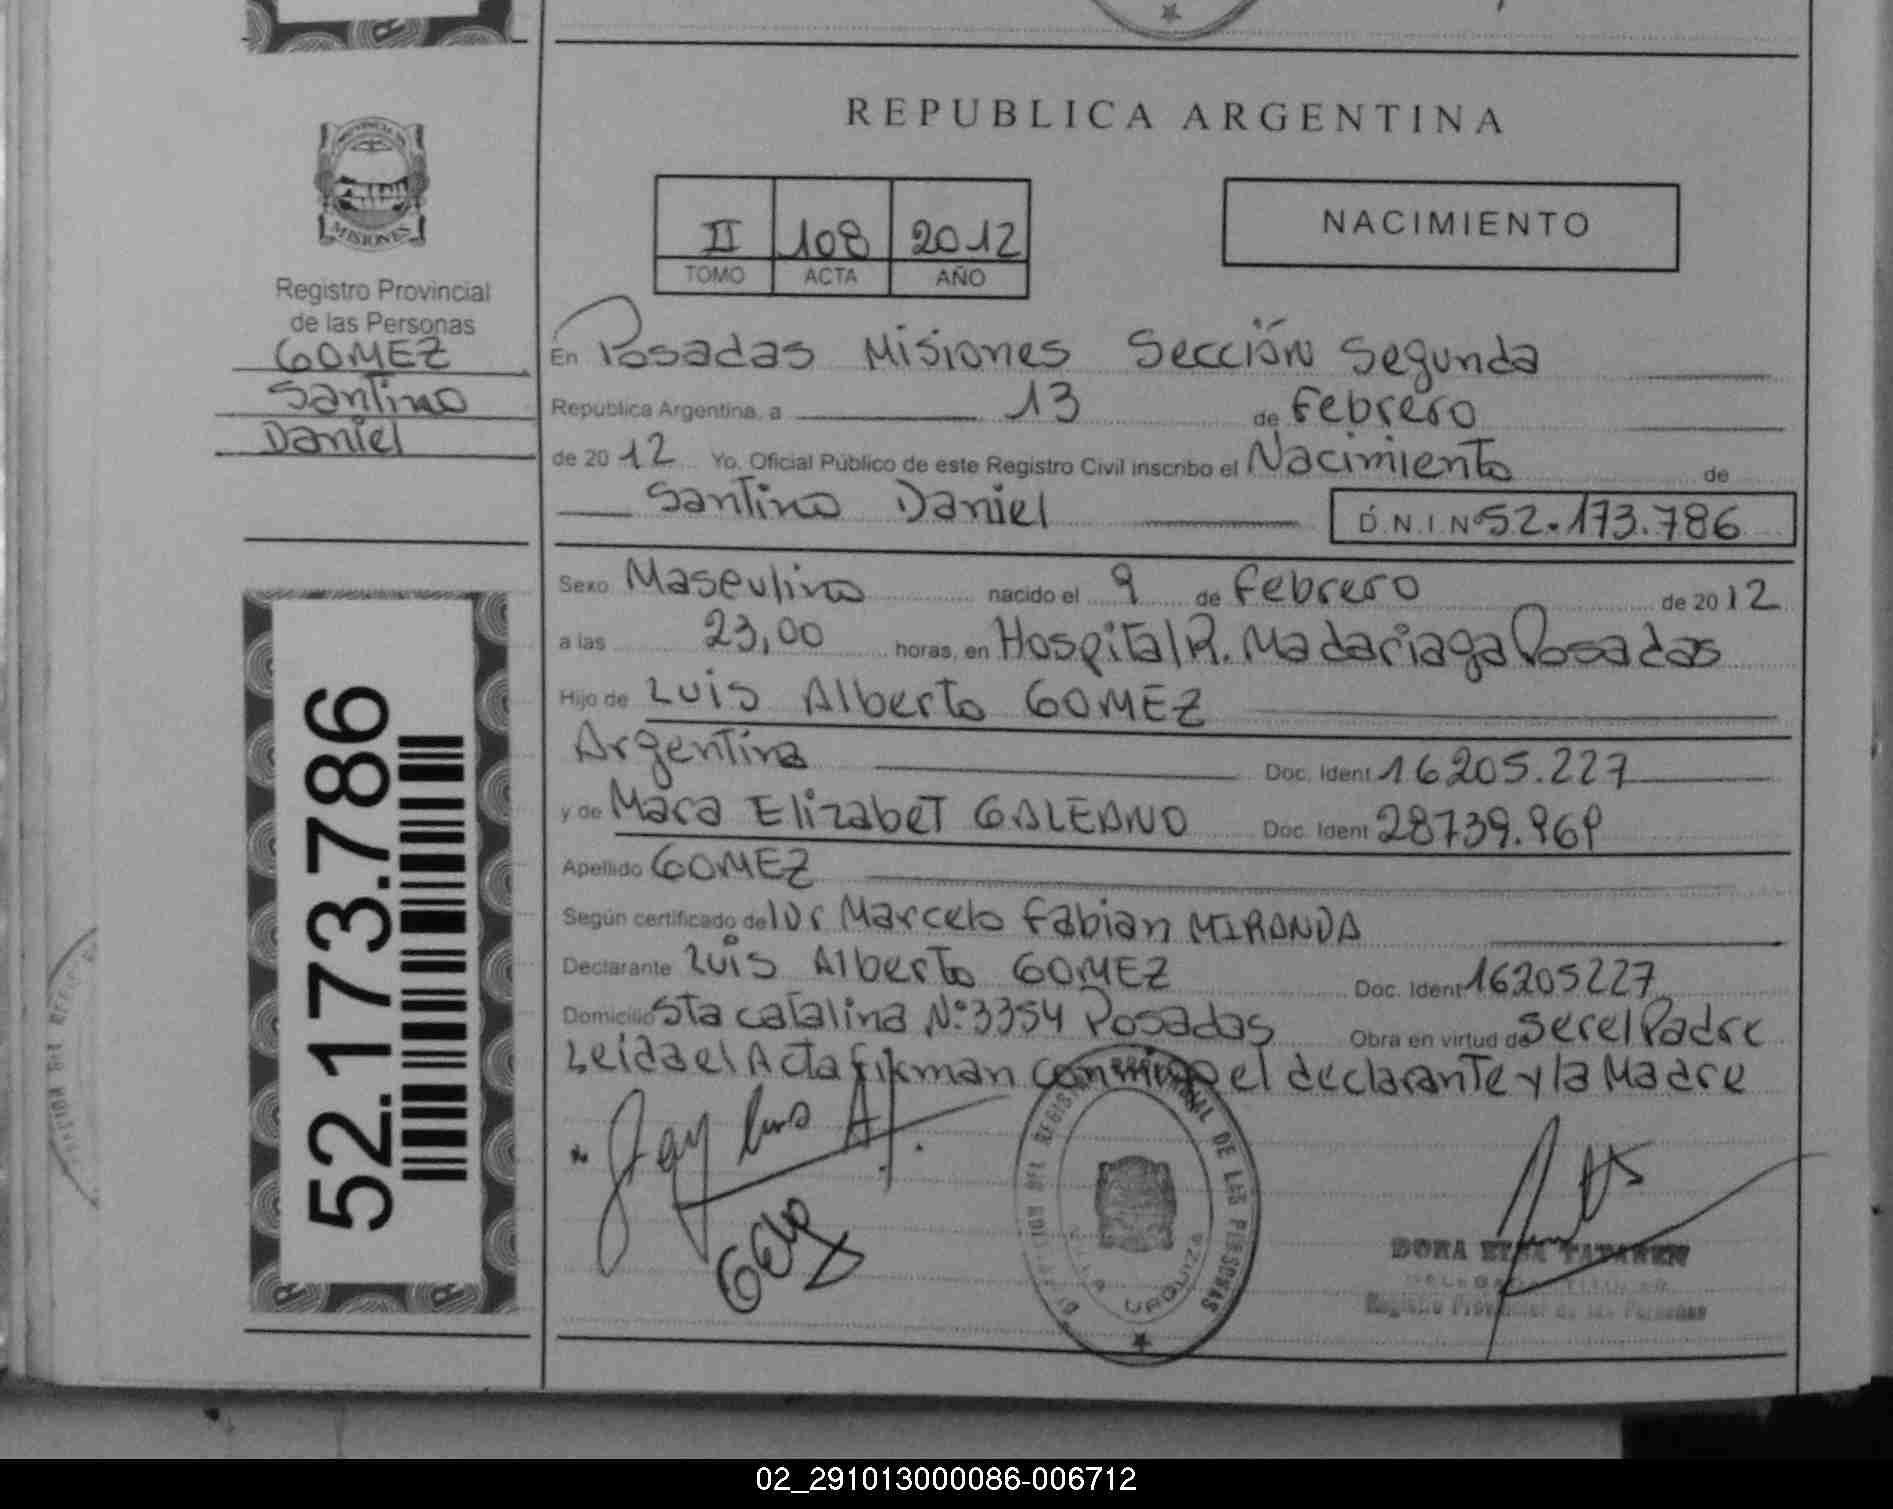 REPUBLICA ARGENTINA
PROVINCIA DE
MISIONES
Registro Provincial
de las Personas
GOMEZ
Santino
Daniel
52.173.786
II 108 2012
TOMO ACTA AÑO
NACIMIENTO
En Posadas Misiones Sección Segunda
Republica Argentina, a 13 de Febrero
de 2012 Yo, Oficial Público de este Registro Civil inscribo el Nacimiento de
Santino Daniel D.N.I. Nº 52.173.786
Sexo Masculino nacido el 9 de Febrero de 2012
a las 23,00 horas, en Hospital R. Madariaga Posadas
Hijo de Luis Alberto GOMEZ
Argentina Doc. Ident 16205.227
y de Mara Elizabet GALEANO Doc. Ident 28739.969
Apellido GOMEZ
Según certificado de Marcelo Fabian MIRANDA
Declarante Luis Alberto GOMEZ Doc. Ident 16205227
Domicilio Sta Catalina Nº 3354 Posadas Obra en virtud de ser el Padre
Leida el Acta firman conmigo el declarante y la Madre
DEL REGISTRO PROVINCIAL DE LAS PERSONAS
VILLA URQUIZA
DORA
Registro Provincial de las Personas
02_291013000086-006712